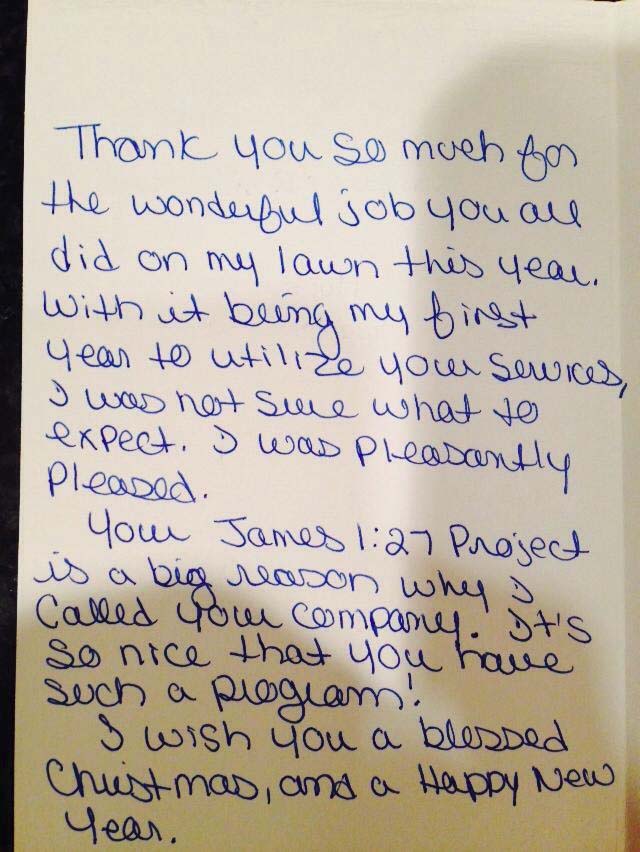 Thank you so much for
the wonderful job you all
did on my lawn this year.
With it being my first
year to utilize your services,
I was not sure what to
expect. I was pleasantly
pleased.
Your James 1:27 Project
is a big reason why I
called your company. It's
so nice that you have
such a program!
I wish you a blessed
Christmas, and a Happy New
Year.